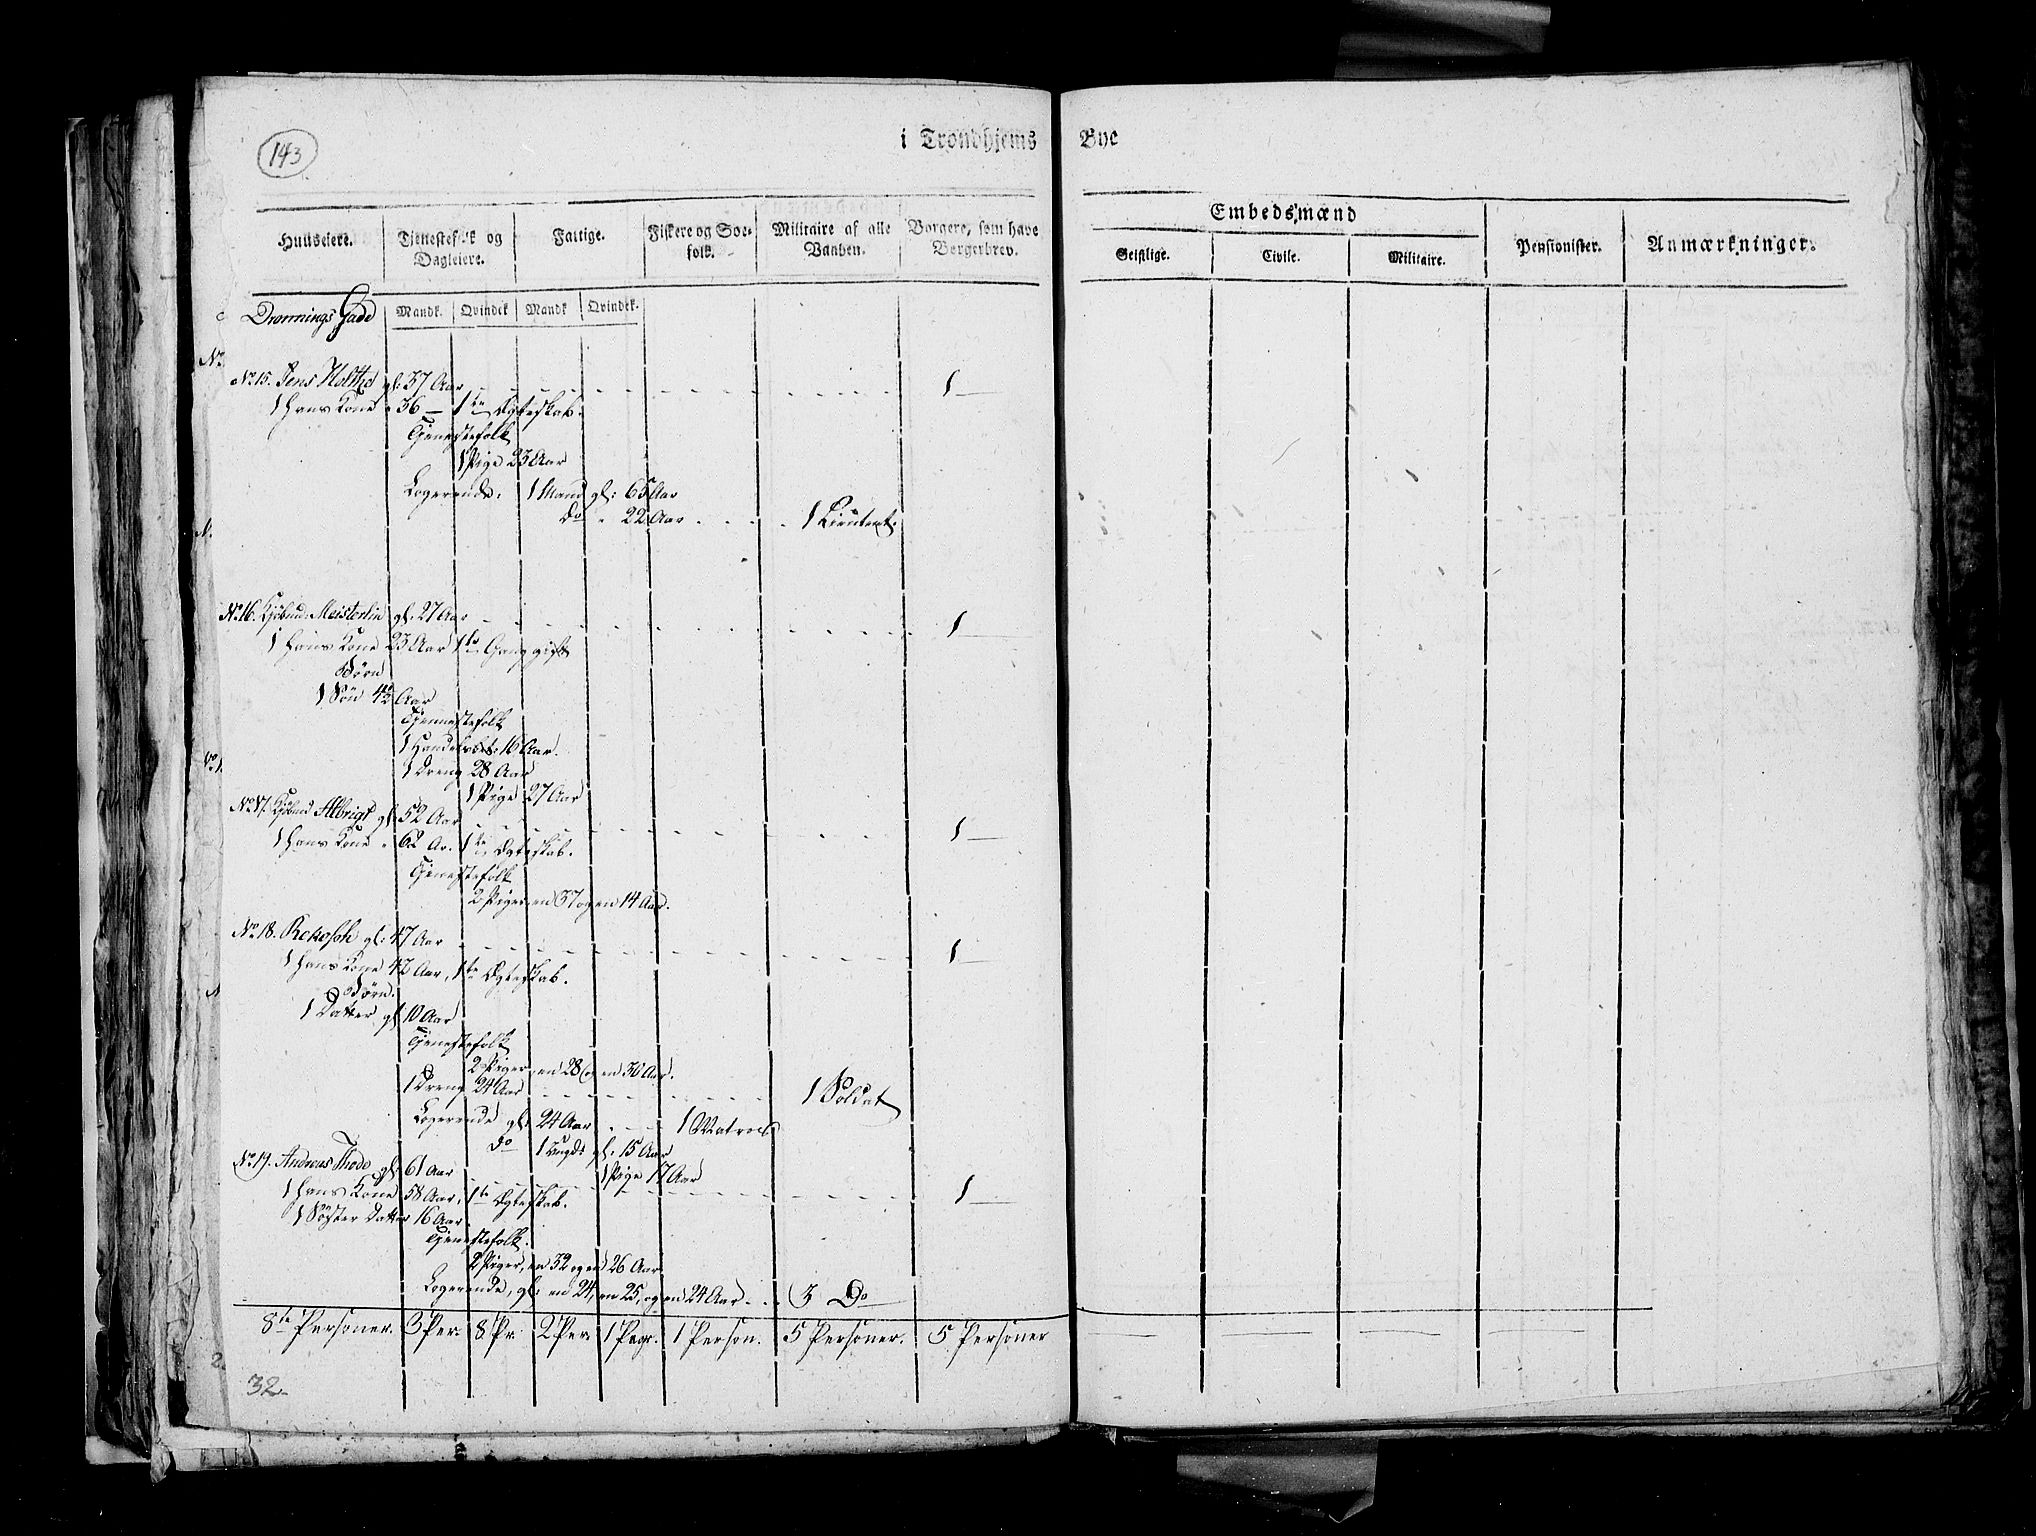 143
i Trondhjems Bye
Huuseiere. Tienestefolk og Dagleiere. Fattige. Fiskere og Søefolk. Militaire af alle Vaaben. Borgere, som have Borgerbrev.
Embedsmænd
Geistlige. Civile. Militaire. Pensionister. Anmærkninger.
Mandk. Qvindek Mandk Qvindek.
Dronnings Gade
No
No 15. Jens Holthe gl: 37 Aar 1
1 hans Kone " 36 — 1te Ægteskab.
Tjenestefolk
1 Pige 23 Aar
Logerende. 1 Mand gl: 65 Aar
Do " 22 Aar 1 Lieutent.
No 16. Kjøbmd: Meisterlin gl: 27 Aar 1
1 hans Kone 23 Aar 1te Gang gift
Børn
1 Søn 4 Aar
Tjennestefolk
1 Handelsbt: 16 Aar.
1 Dreng 28 Aar
1 Pige 27 Aar
No 17. Kjøbmd Albrigt gl: 52 Aar 1
1 hans Kone " 62 Ar. 1te Ægteskab.
Tjenestefolk
2 Piger en 37 og en 14 Aar.
No 18. gl: 47 Aar 1
1 hans Kone 42 Aar, 1te Ægteskab.
Børn.
1 Datter gl 10 Aar
Tjenestefolk
2 Piger, en 28 og en 30 Aar.
1 Dreng 24 Aar 1 Soldat
Logerende gl: 24 Aar 1 Matros
Do 1 gl: 15 Aar
1 Pige 17 Aar
No 19. Andreas Thode gl: 61 Aar 1
1 hans Kone 58 Aar, 1te Ægteskab.
1 Søster Datter 16 Aar.
Tjenestefolk.
2 Piger, en 32 og en 26 Aar
Logerende, gl: en 24, en 25, og en 24 Aar 3 Do
8te Personer. 3 Per. 8 Pr. 2 Per. 1 1 Person. 5 Personer. 5 Personer
32